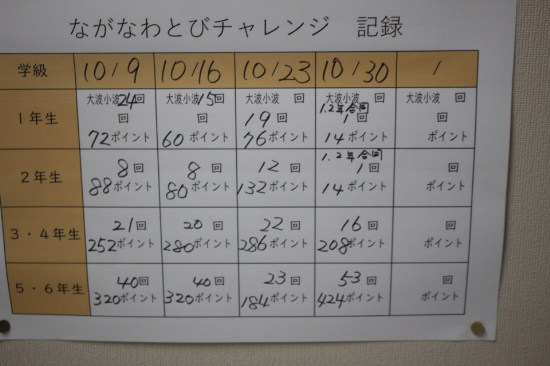 ながなわとびチャレンジ 記録
学級 10/9 10/16 10/23 10/30 /
1年生 大波小波24回 大波小波15回 大波小波 回 大波小波 回 大波小波 回
回 回 19回 1.2年合同 1回 回
72ポイント 60ポイント 76ポイント 14ポイント ポイント
2年生 8回 8回 12回 1.2年合同 1回 回
88ポイント 80ポイント 132ポイント 14ポイント ポイント
3・4年生 21回 20回 22回 16回 回
252ポイント 280ポイント 286ポイント 208ポイント ポイント
5・6年生 40回 40回 23回 53回 回
320ポイント 320ポイント 184ポイント 424ポイント ポイント